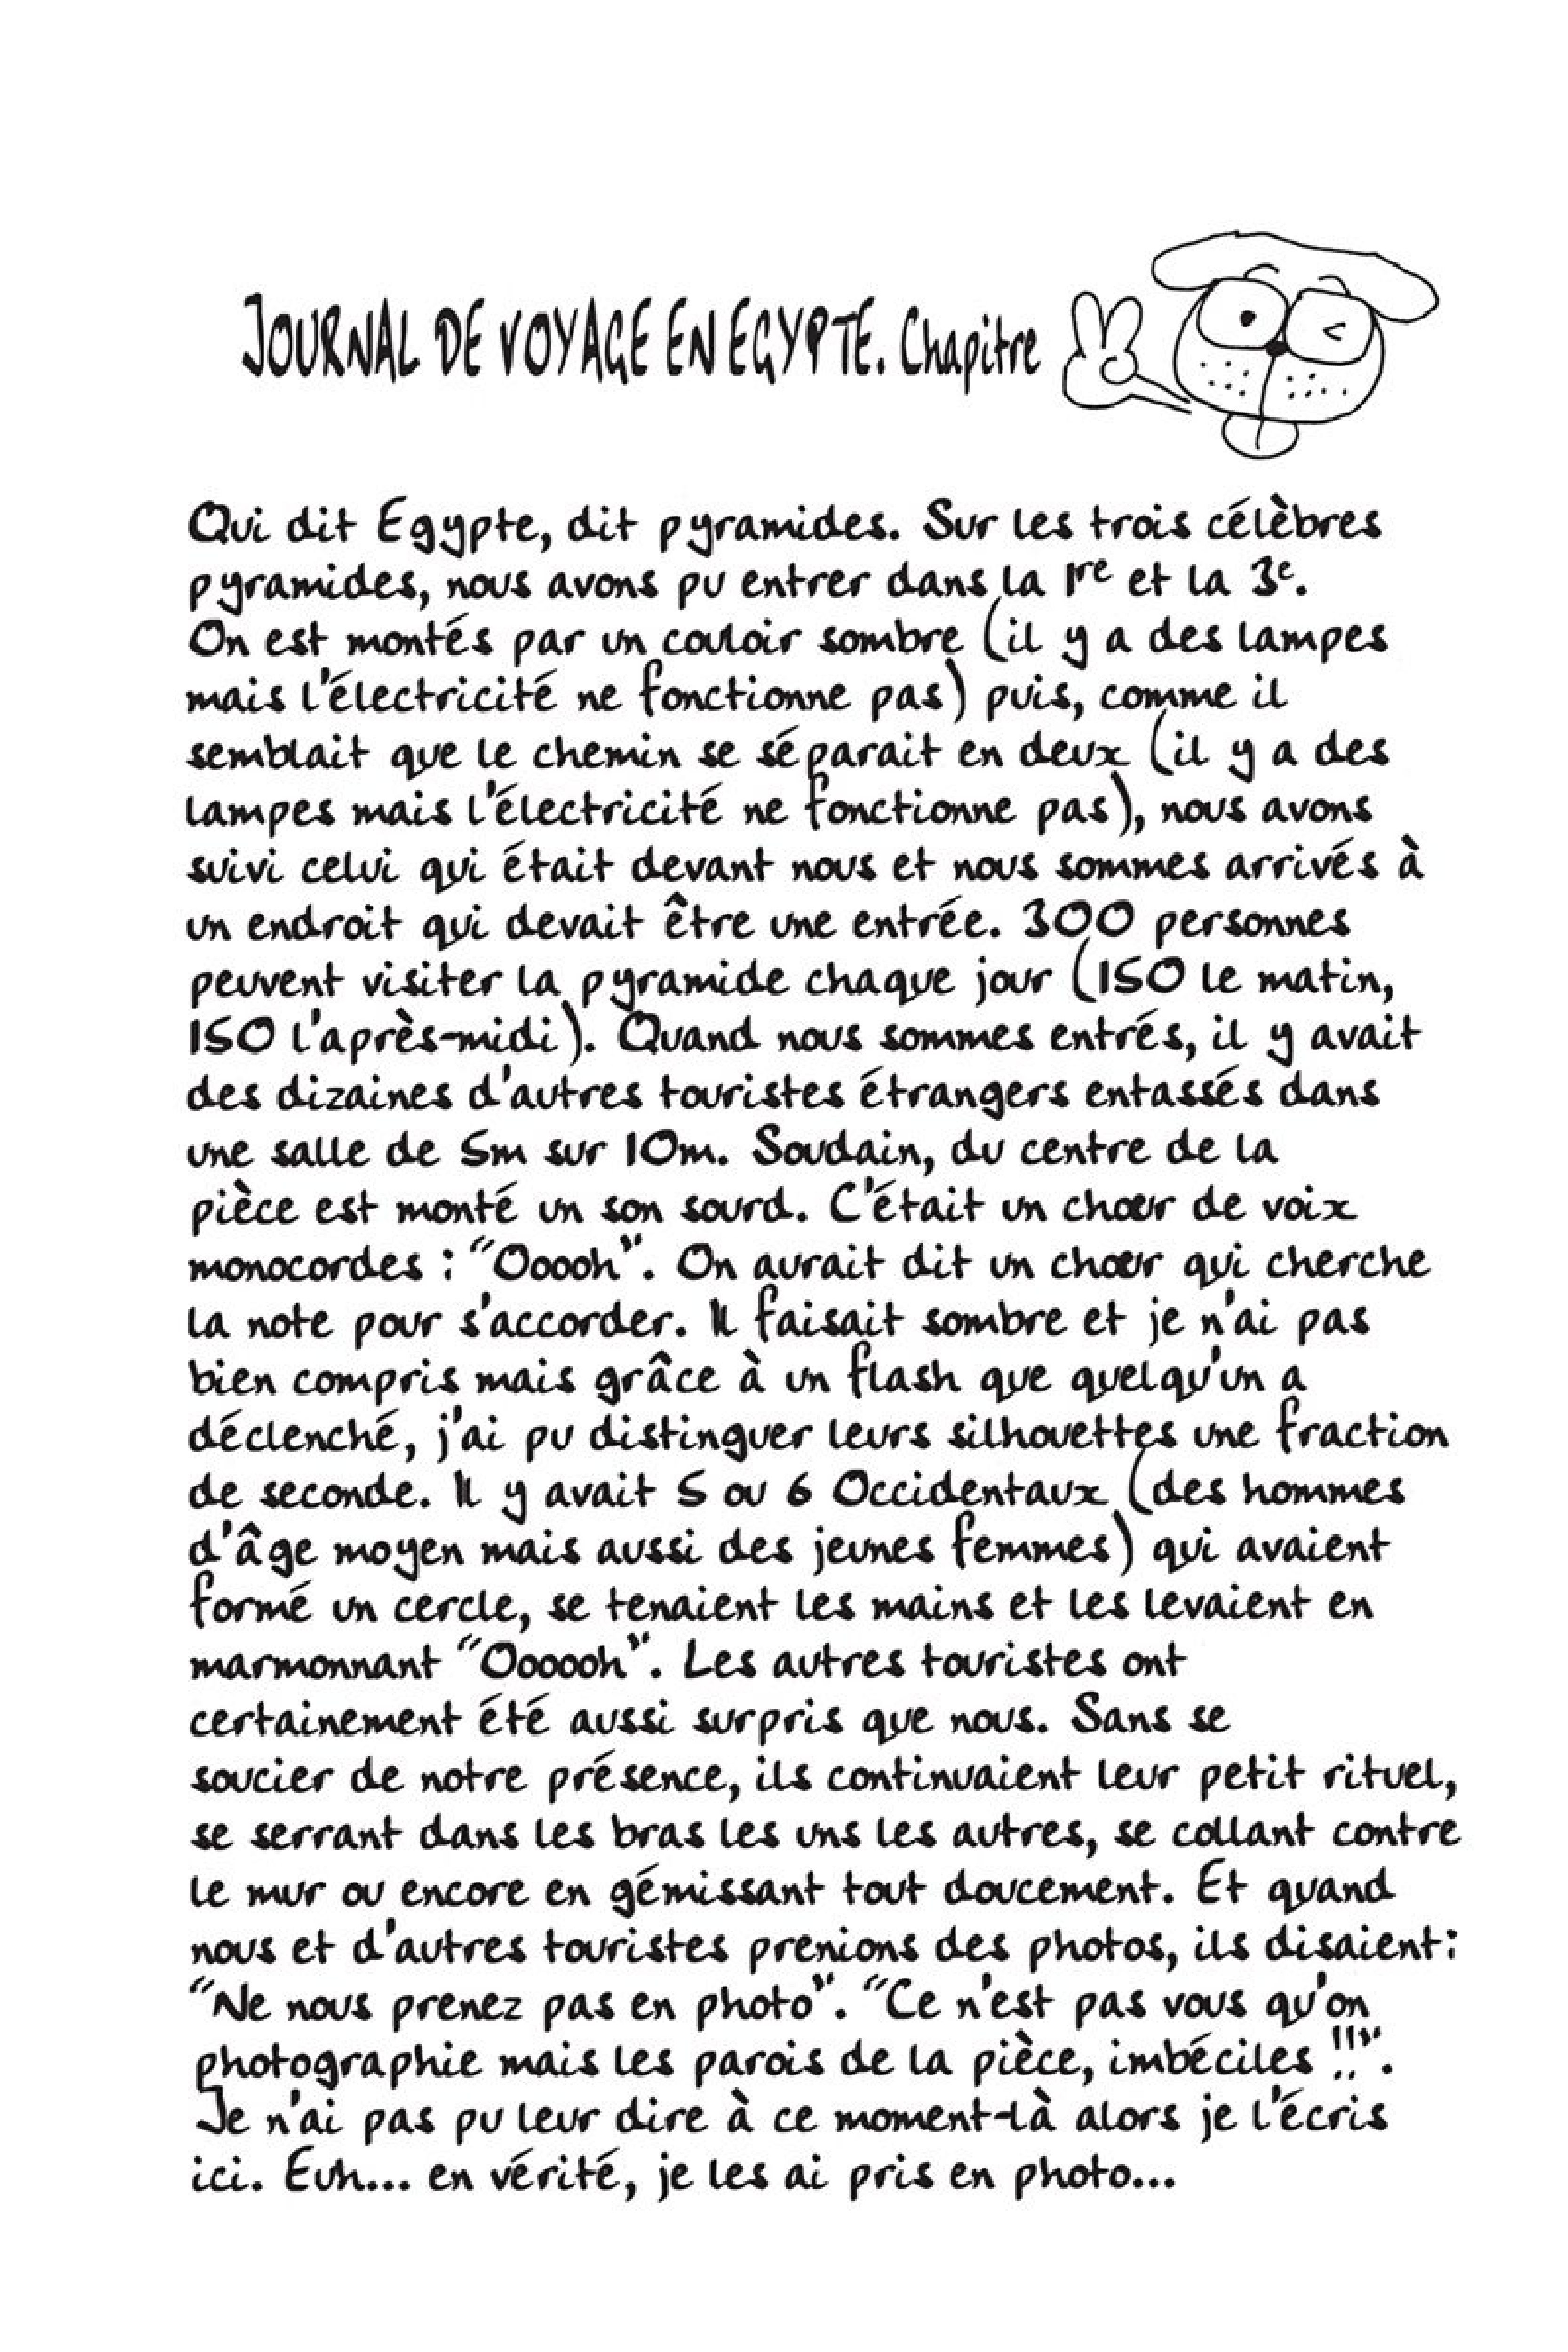 JOURNAL DE VOYAGE EN EGYPTE. Chapitre
Qui dit Egypte, dit pyramides. Sur les trois célèbres
pyramides, nous avons pu entrer dans la 1re et la 3e.
On est montés par un couloir sombre (il y a des lampes
mais l'électricité ne fonctionne pas) puis, comme il
semblait que le chemin se séparait en deux (il y a des
lampes mais l'électricité ne fonctionne pas), nous avons
suivi celui qui était devant nous et nous sommes arrivés à
un endroit qui devait être une entrée. 300 personnes
peuvent visiter la pyramide chaque jour (150 le matin,
150 l'après-midi). Quand nous sommes entrés, il y avait
des dizaines d'autres touristes étrangers entassés dans
une salle de 5m sur 10m. Soudain, du centre de la
pièce est monté un son sourd. C'était un chœur de voix
monocordes : "Ooooh". On aurait dit un chœur qui cherche
la note pour s'accorder. Il faisait sombre et je n'ai pas
bien compris mais grâce à un flash que quelqu'un a
déclenché, j'ai pu distinguer leurs silhouettes une fraction
de seconde. Il y avait 5 ou 6 Occidentaux (des hommes
d'âge moyen mais aussi des jeunes femmes) qui avaient
formé un cercle, se tenaient les mains et les levaient en
marmonnant "Oooooh". Les autres touristes ont
certainement été aussi surpris que nous. Sans se
soucier de notre présence, ils continuaient leur petit rituel,
se serrant dans les bras les uns les autres, se collant contre
le mur ou encore en gémissant tout doucement. Et quand
nous et d'autres touristes prenions des photos, ils disaient:
"Ne nous prenez pas en photo". "Ce n'est pas vous qu'on
photographie mais les parois de la pièce, imbéciles !!".
Je n'ai pas pu leur dire à ce moment-là alors je l'écris
ici. Euh... en vérité, je les ai pris en photo...